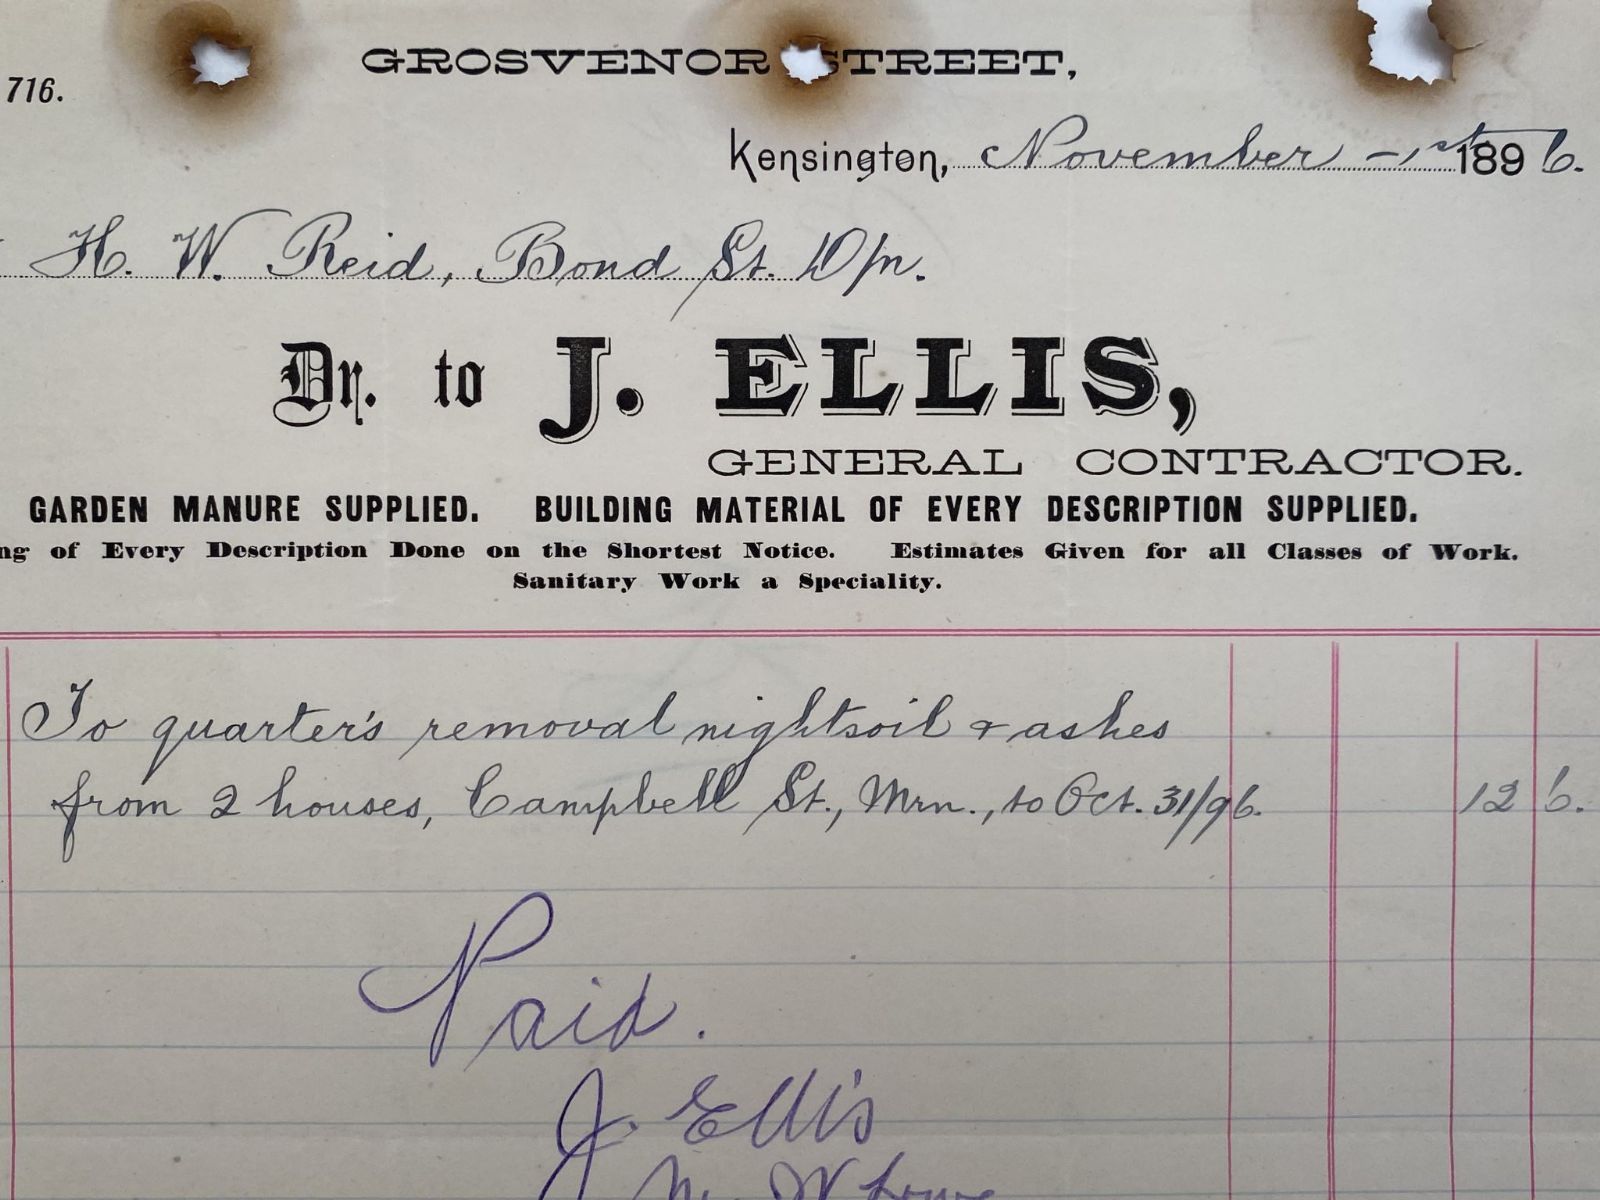 GROSVENOR STREET,
716.
Kensington, November 1st 1896.
H. W. Reid, Bond St. D/n.
Dr. to J. ELLIS,
GENERAL CONTRACTOR.
GARDEN MANURE SUPPLIED. BUILDING MATERIAL OF EVERY DESCRIPTION SUPPLIED.
of Every Description Done on the Shortest Notice. Estimates Given for all Classes of Work.
Sanitary Work a Speciality.
To quarter's removal nightsoil & ashes
from 2 houses, Campbell St., Mrn., to Oct. 31/96. 12 6.
Paid.
J. Ellis